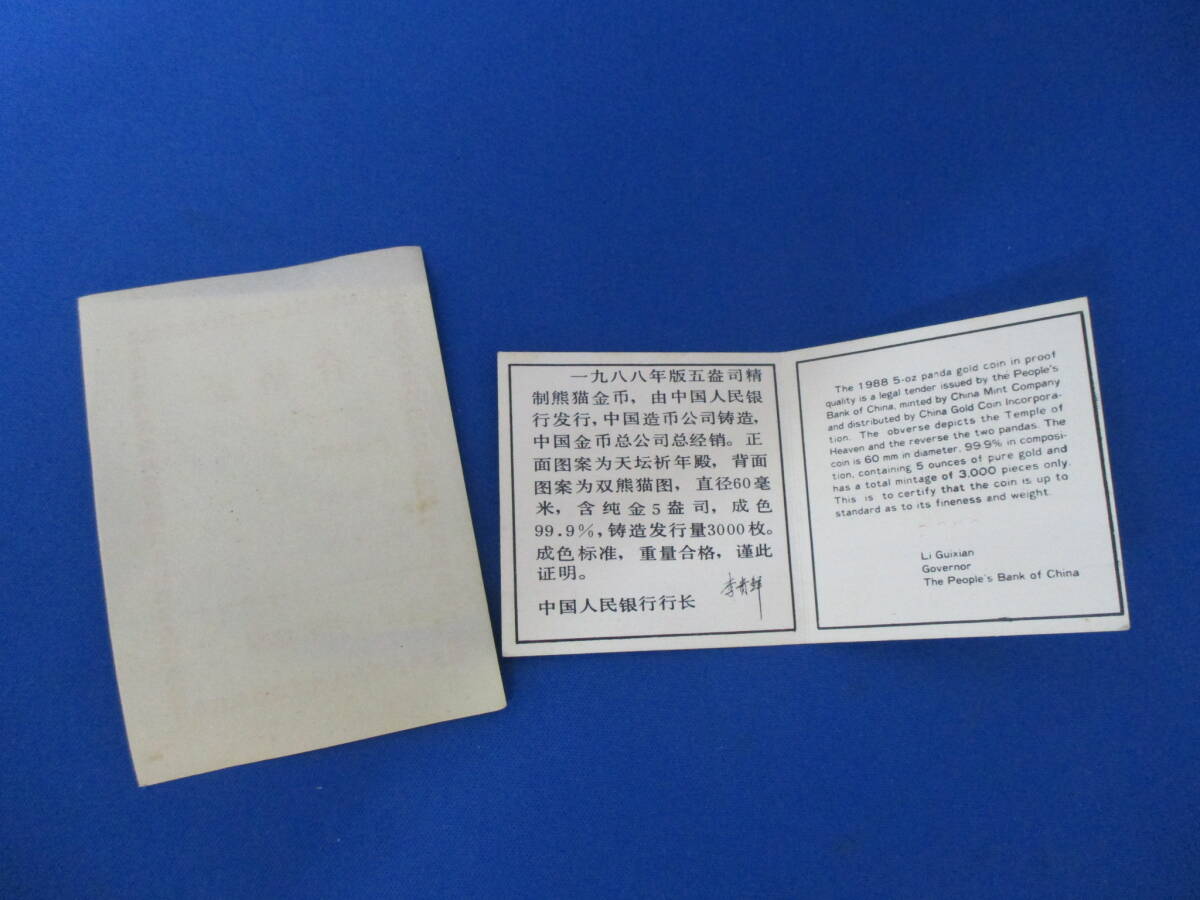 一九八八年版五盎司精
制熊猫金币，由中国人民银
行发行，中国造币公司铸造，
中国金币总公司总经销。正
面图案为天坛祈年殿，背面
图案为双熊猫图，直径60毫
米，含纯金5盎司，成色
99.9%，铸造发行量3000枚。
成色标准，重量合格，谨此
证明。
中国人民银行行长 李贵鲜
The 1988 5-oz panda gold coin in proof
quality is a legal tender issued by the People's
Bank of China, minted by China Mint Company
and distributed by China Gold Coin Incorpora-
tion. The obverse depicts the Temple of
Heaven and the reverse the two pandas. The
coin is 60 mm in diameter, 99.9% in composi-
tion, containing 5 ounces of pure gold and
has a total mintage of 3,000 pieces only.
This is to certify that the coin is up to
standard as to its fineness and weight.
Li Guixian
Governor
The People's Bank of China